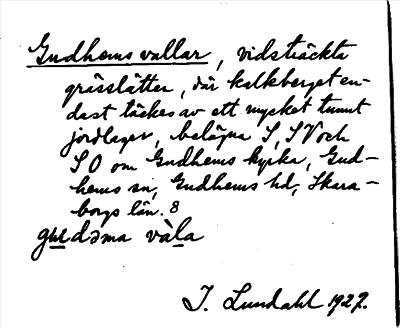 Gudhems vallar, vidsträckta
grässlätter, där kalkberget en-
dast täckes av ett mycket tunnt
jordlager, belägna S, SV och
SO om Gudhems kyrka, Gud-
hems sn, Gudhems hd, Skara-
borgs län. 8
dəma vàla
I. Lundahl 1927.